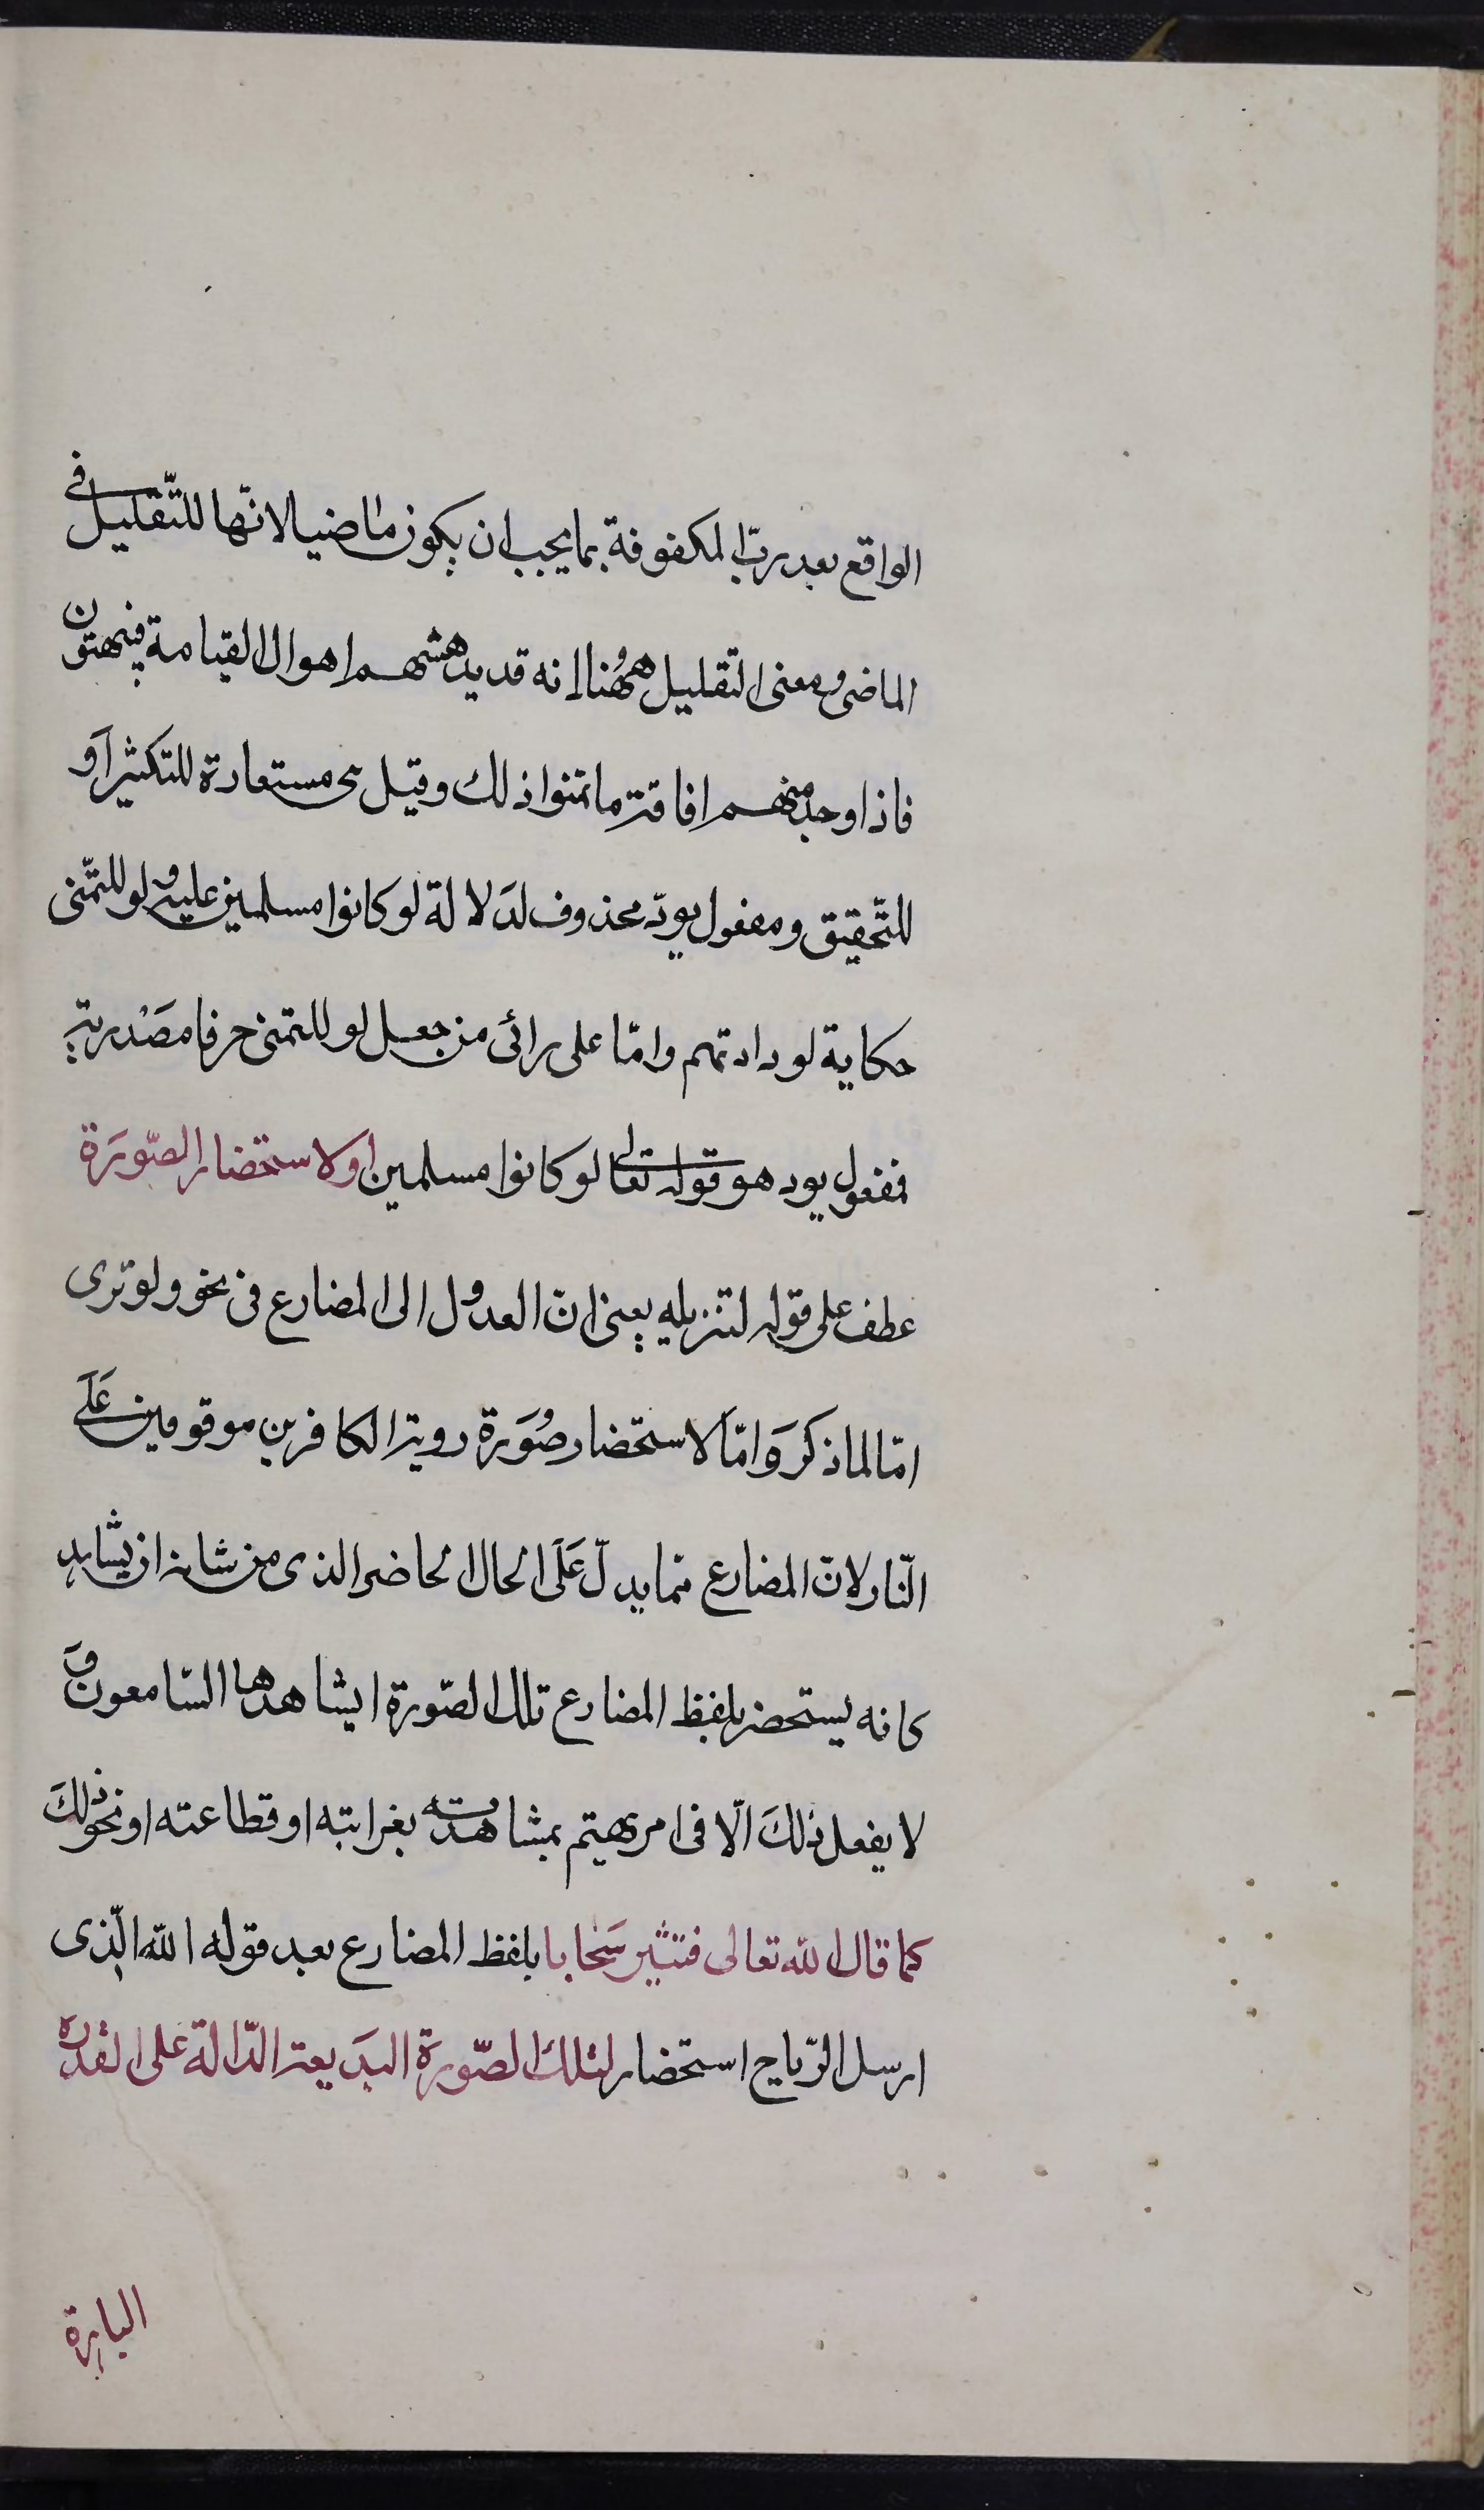 الواقع بعد ربّ المكفوفة بما يجب ان يكون ماضيا لانّها للتّقليل فى
الماضى ومعنى التّقليل ههُنا انه قد يدهشهم اهوال القيامة فيبهتون
فاذا وجد منهم افاقة ما تمنوا ذلك وقيل هى مستعارة للتكثير اَو
للتّحقيق ومفعول يودّ محذوف لدَلالة لو كانوا مسلمين عليه ولو للتّمنى
حكاية لودادتهم وامّا على رائى من جعل لو للتمنى حرفا مصَدْرية
فمفعول يود هو قوله تعالى لو كانوا مسلمين او لاستحضار الصّورَة
عطف على قوله لتنزيله يعنى انّ العدول الى المضارع فى نحو ولو ترى
امّا لما ذكرَ وَامّا لاستحضار صُوَرة روية الكافرين موقوفين عَلَى
النّار لانّ المضارع ممّا يدلّ عَلَى الحال الحاضر الذى من شانه ان يشّاهد
كانه يستحضر بلفظ المضارع تلك الصّورة ليشاهدها السّامعون وَ
لا يفعل ذلكَ الّا فى امر يهتم بمشاهدته بغرابته او قطاعته او نحو ذلكَ
كما قال الله تعالى فتثير سَحابا بلفظ المضارع بعد قوله الله الّذى
ارسل الرّياح استحضار لتلكَ الصّورَة البدَيعة الدّالة على القدرة
الباهرة